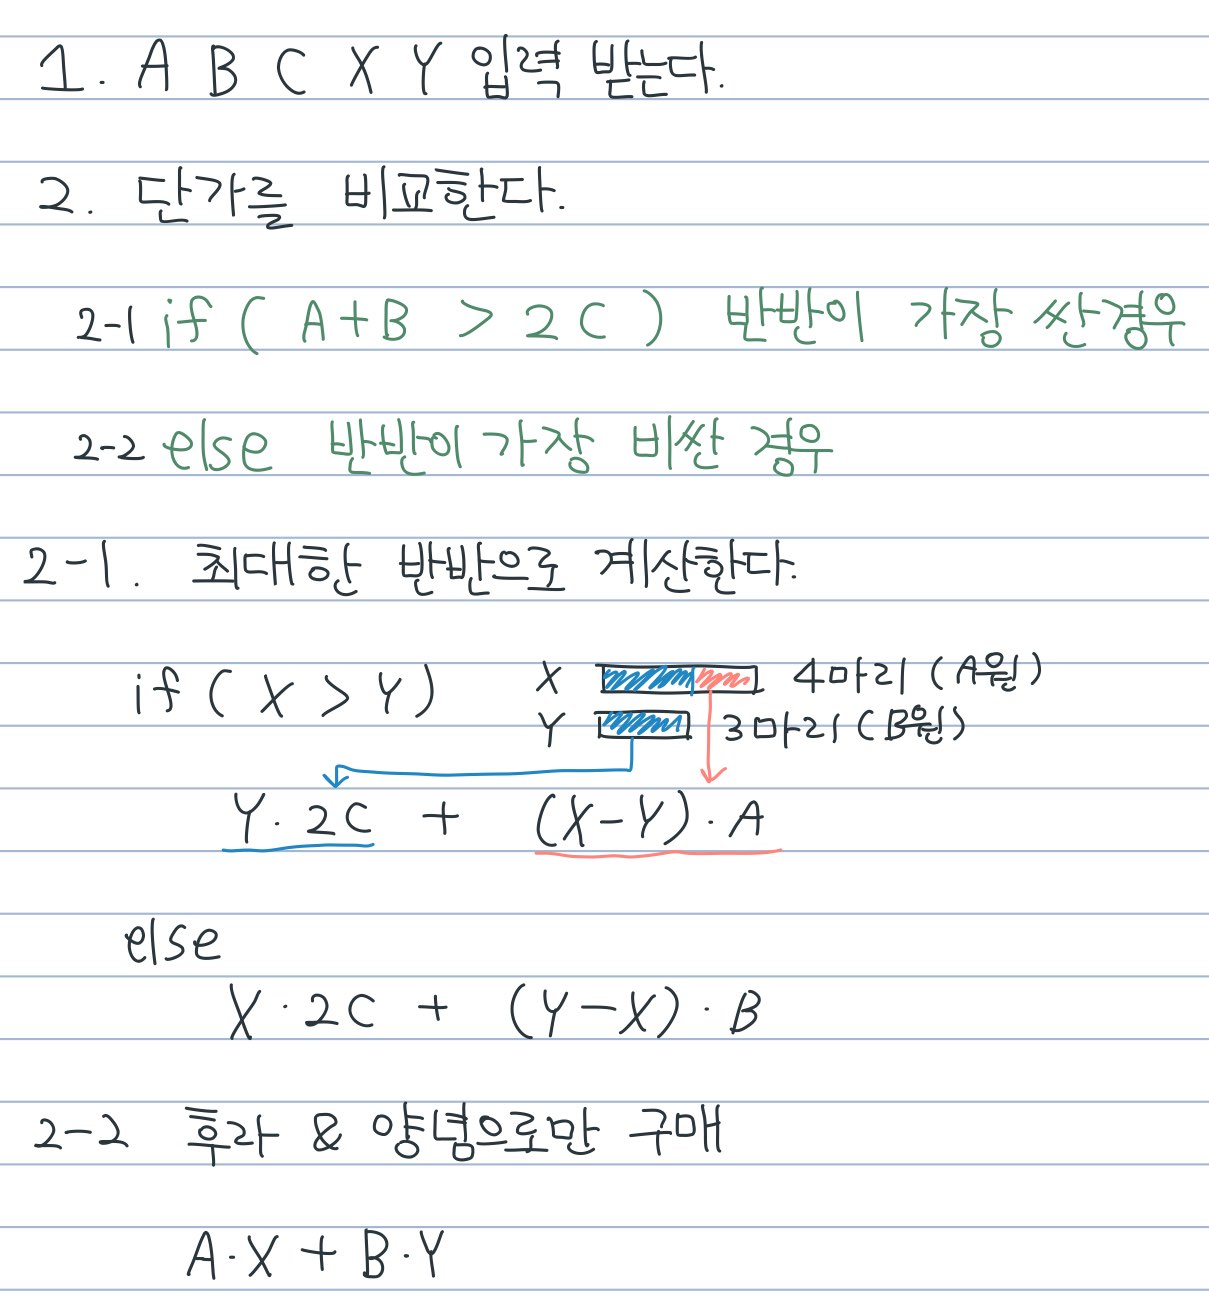 1. A B C X Y 입력 받는다.
2. 단가를 비교한다.
2-1 if ( A+B > 2C ) 반반이 가장 싼경우
2-2 else 반반이 가장 비싼 경우
2-1. 최대한 반반으로 계산한다.
if ( X > Y )
X 4마리 (A원)
Y 3마리 (B원)
Y · 2C + (X-Y) · A
else
X · 2C + (Y-X) · B
2-2 후라 & 양념으로만 구매
A·X + B·Y